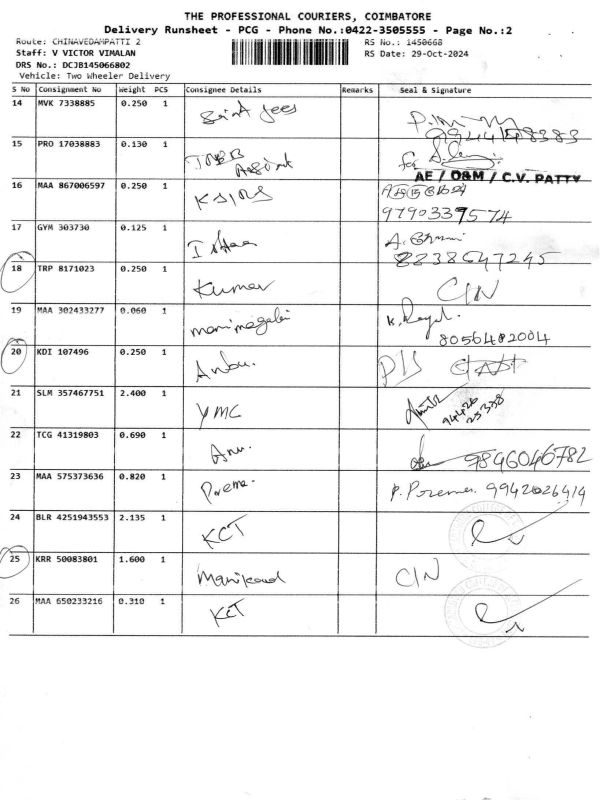 THE PROFESSIONAL COURIERS, COIMBATORE
Delivery Runsheet - PCG - Phone No.:0422-3505555 - Page No.:2
Route: CHINAVEDAMPATTI 2
RS No.: 1450668
Staff: V VICTOR VIMALAN
RS Date: 29-Oct-2024
DRS No.: DCJB145066802
Vehicle: Two Wheeler Delivery
S No Consignment No Weight PCS Consignee Details Remarks Seal & Signature
14 MVK 7338885 0.250 1 Saint Jees
15 PRO 17038883 0.130 1 TNEB
AE / O&M / C.V. PATTY
16 MAA 867006597 0.250 1 KSIRS
9790339574
17 GYM 303730 0.125 1
8838647245
18 TRP 8171023 0.250 1 Kumar CIN
19 MAA 302433277 0.060 1 manimegalai
8056482004
20 KDI 107496 0.250 1 Anbu. D/S
21 SLM 357467751 2.400 1 YMC
94426
25338
22 TCG 41319803 0.690 1 Anu. 9846046782
23 MAA 575373636 0.820 1 Prema. P. Prema. 9942026414
24 BLR 4251943553 2.135 1 KCT
25 KRR 50083801 1.600 1 Manikand CIN
26 MAA 650233216 0.310 1 KCT